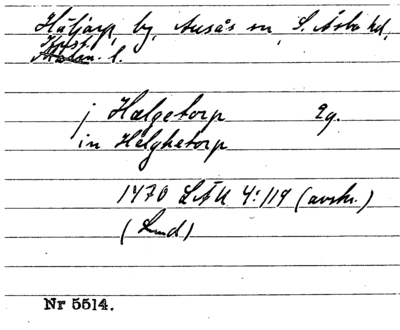 Häljarp, by, Ausås sn, S. Åsbo hd,
Krist. l.
j Hælgetorp 2g.
in Helghetorp
1470 LÄU 4:119 (avskr.)
(Lund)
Nr 5514.